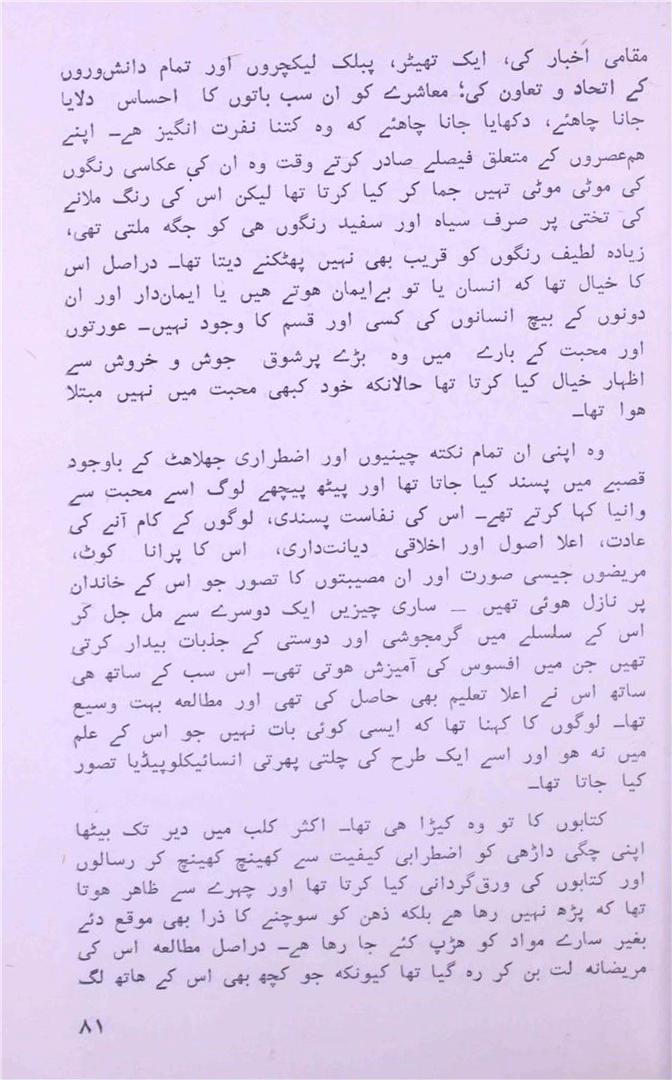 مقامی اخبار کی، ایک تھیٹر، پبلک لیکچروں اور تمام دانش‌وروں
کے اتحاد و تعاون کی؛ معاشرے کو ان سب باتوں کا احساس دلایا
جانا چاھئے، دکھایا جانا چاھئے کہ وہ کتنا نفرت انگیز ھے۔ اپنے
ھم‌عصروں کے متعلق فیصلے صادر کرتے وقت وہ ان کی عکاسی رنگوں
کی موٹی موٹی تہیں جما کر کیا کرتا تھا لیکن اس کی رنگ ملانے
کی تختی پر صرف سیاہ اور سفید رنگوں ھی کو جگہ ملتی تھی،
زیادہ لطیف رنگوں کو قریب بھی نہیں پھٹکنے دیتا تھا۔ دراصل اس
کا خیال تھا کہ انسان یا تو بے‌ایمان ھوتے ھیں یا ایمان‌دار اور ان
دونوں کے بیچ انسانوں کی کسی اور قسم کا وجود نہیں۔ عورتوں
اور محبت کے بارے میں وہ بڑے پرشوق جوش و خروش سے
اظہار خیال کیا کرتا تھا حالانکہ خود کبھی محبت میں نہیں مبتلا
ھوا تھا۔
وہ اپنی ان تمام نکتہ چینیوں اور اضطراری جھلاھٹ کے باوجود
قصبے میں پسند کیا جاتا تھا اور پیٹھ پیچھے لوگ اسے محبت سے
وانیا کہا کرتے تھے۔ اس کی نفاست پسندی، لوگوں کے کام آنے کی
عادت، اعلا اصول اور اخلاقی دیانت‌داری، اس کا پرانا کوٹ،
مریضوں جیسی صورت اور ان مصیبتوں کا تصور جو اس کے خاندان
پر نازل ھوئی تھیں — ساری چیزیں ایک دوسرے سے مل جل کر
اس کے سلسلے میں گرمجوشی اور دوستی کے جذبات بیدار کرتی
تھیں جن میں افسوس کی آمیزش ھوتی تھی۔ اس سب کے ساتھ ھی
ساتھ اس نے اعلا تعلیم بھی حاصل کی تھی اور مطالعہ بہت وسیع
تھا۔ لوگوں کا کہنا تھا کہ ایسی کوئی بات نہیں جو اس کے علم
میں نہ ھو اور اسے ایک طرح کی چلتی پھرتی انسائیکلوپیڈیا تصور
کیا جاتا تھا۔
کتابوں کا تو وہ کیڑا ھی تھا۔ اکثر کلب میں دیر تک بیٹھا
اپنی چگی داڑھی کو اضطرابی کیفیت سے کھینچ کھینچ کر رسالوں
اور کتابوں کی ورق‌گردانی کیا کرتا تھا اور چہرے سے ظاھر ھوتا
تھا کہ پڑھ نہیں رھا ھے بلکہ ذھن کو سوچنے کا ذرا بھی موقع دئے
بغیر سارے مواد کو ھڑپ کئے جا رھا ھے۔ دراصل مطالعہ اس کی
مریضانہ لت بن کر رہ گیا تھا کیونکہ جو کچھ بھی اس کے ھاتھ لگ
۸۱